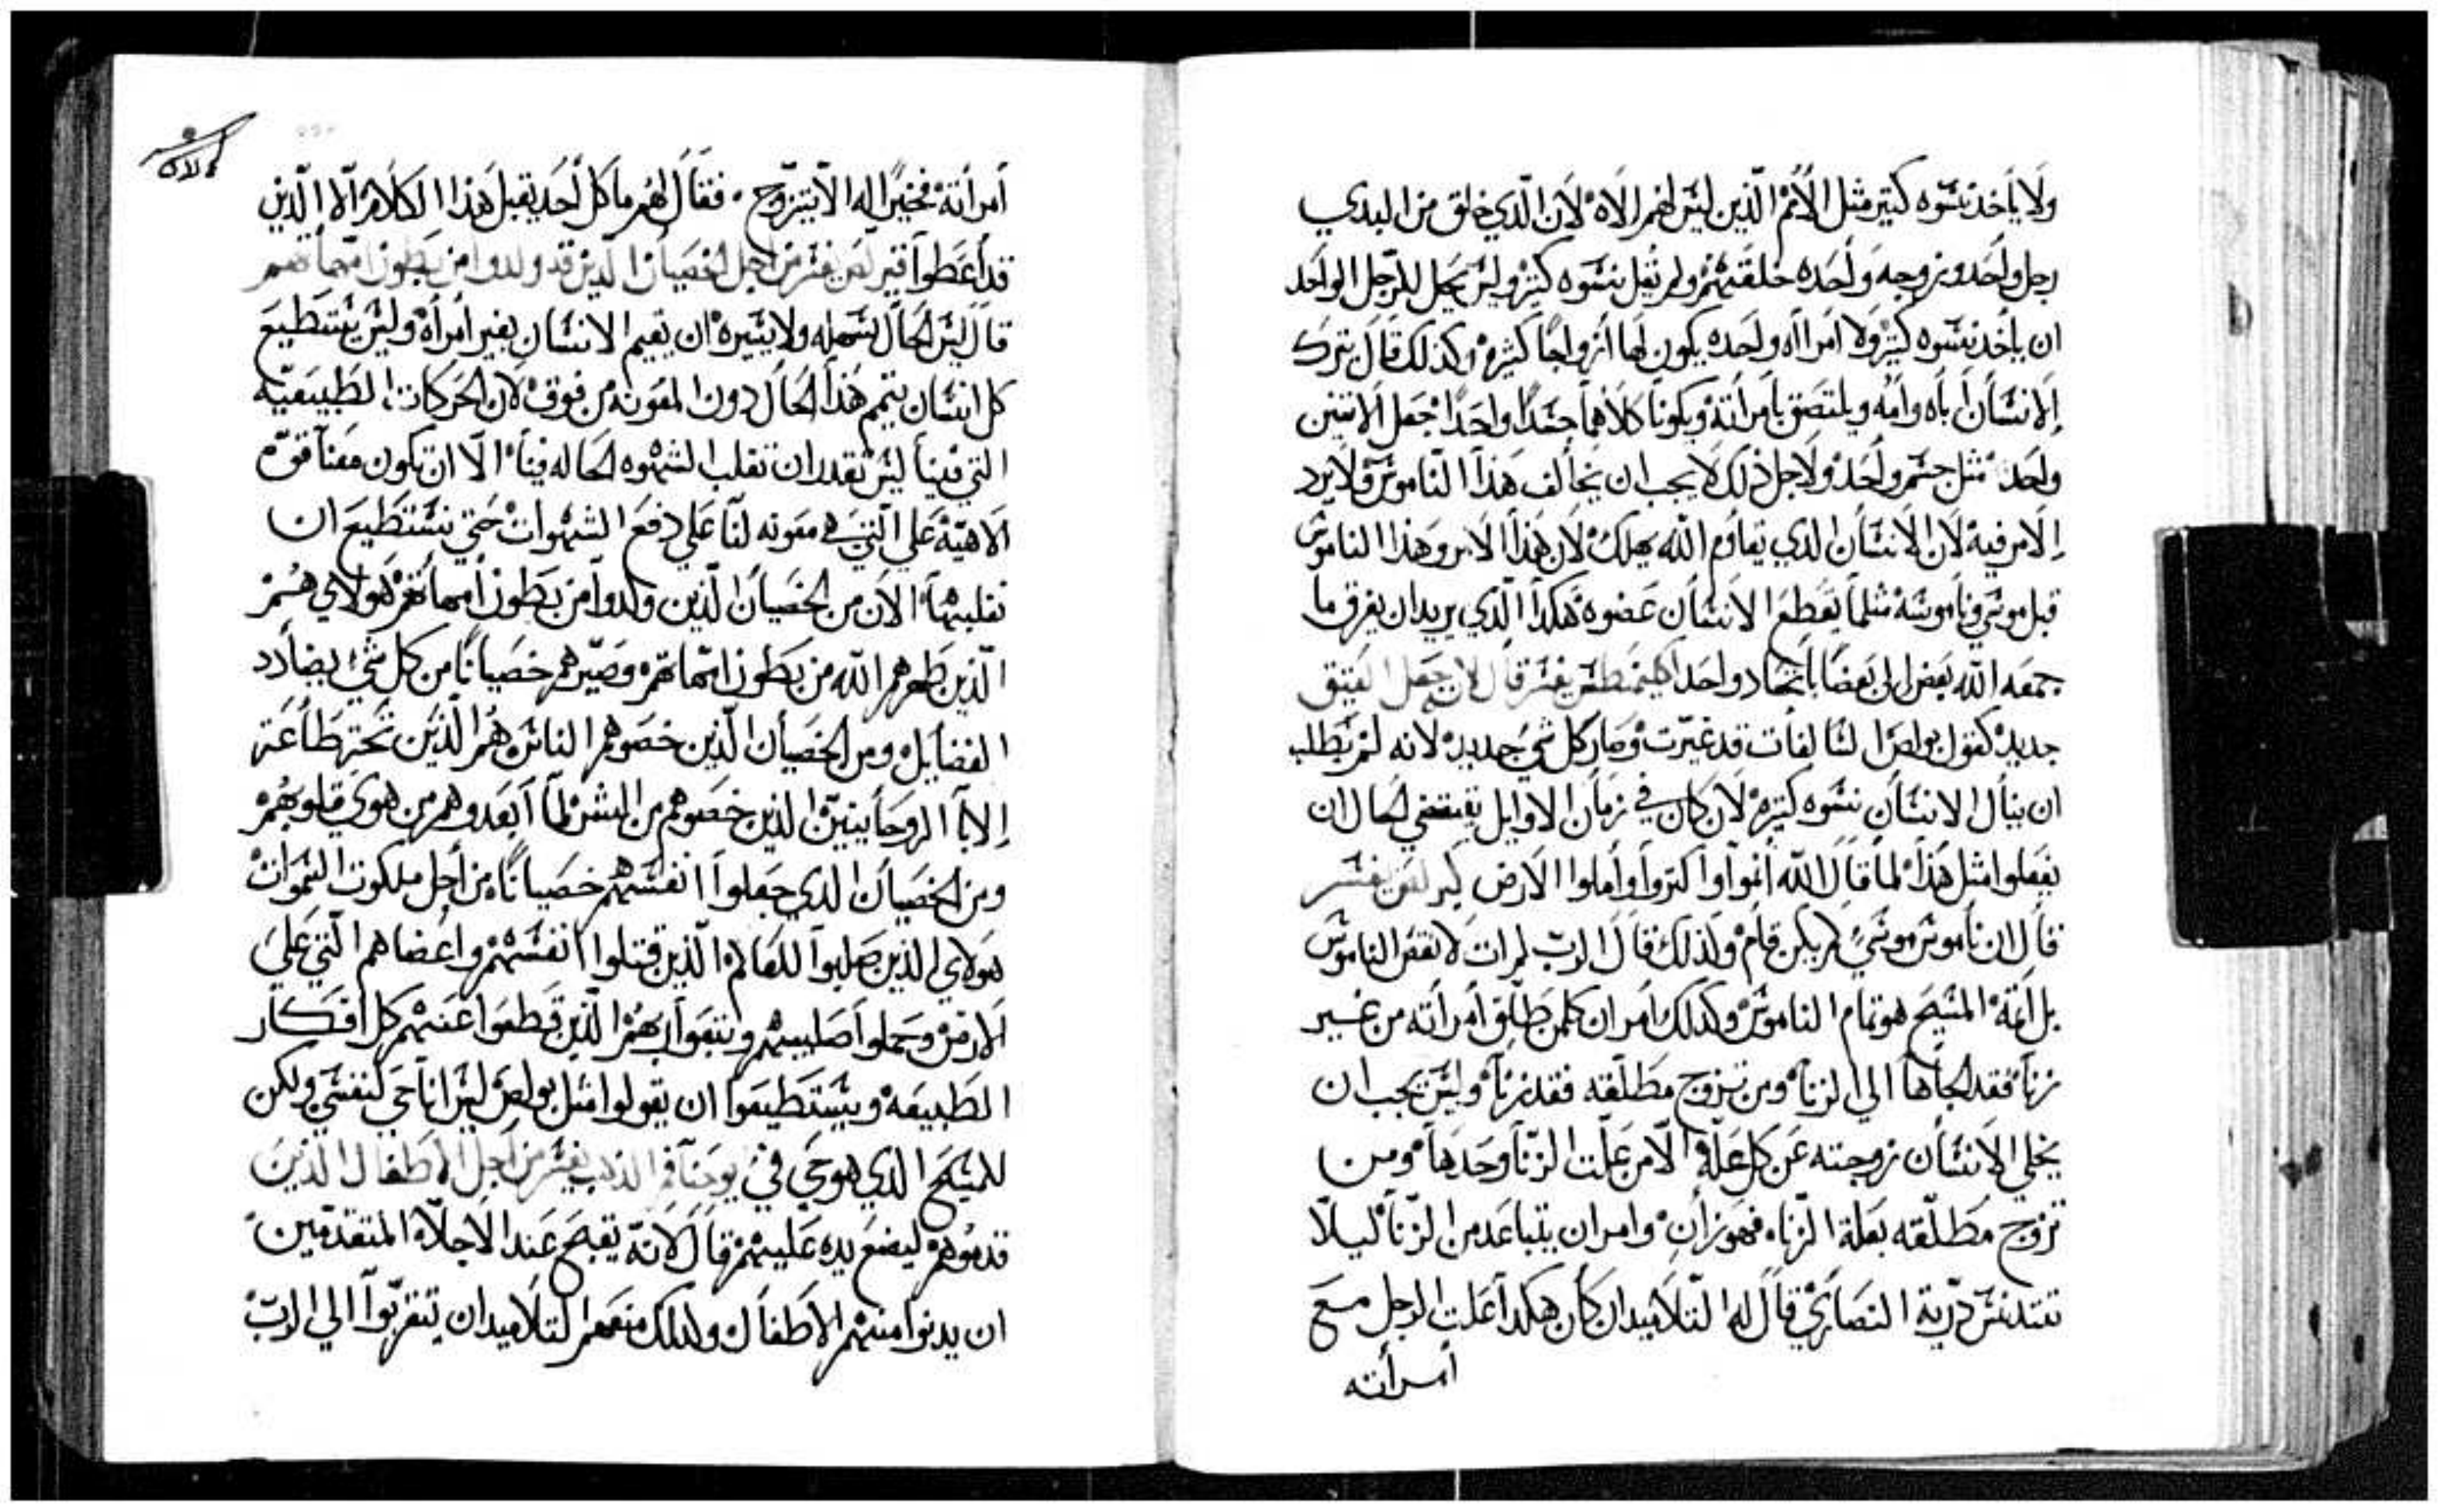 ولا ياخد نسوه كتير مثل الأمم الذين ليس لهم الاه لان الدي خلق من البدي
رجل واحد وزوجه واحده خلقتهم ولم تقل نسوه كتير وليس يحل للرجل الواحد
ان ياخد نسوه كتير ولا امرااه واحده يكون لها أزواجًا كثيره وكذلك قال يترك
الانسان أباه وامه ويلتصق بامرأته ويكونا كلاهما جسدًا واحدًا جعل الاتنين
واحد مثل جسم واحد ولاجل ذلك لا يجب ان يخالف هذا الناموس ولا يرد
الامر فيه لان الانسان الدي يقاوم الله يهلك لان هذا الامر وهذا الناموس
قبل موسي وناموسه مثلما يقطع الانسان عضوه هكدا الدي يريد ان يفرق ما
جمعه الله بعض الي بعضا باتحاد واحد اكليمنطس يفسر قال لان جعل العتيق
جديد كقول بولص السالفات قد غيرت وصار كل شي جديد لانه لم يطلب
ان ينال الانسان نسوه كتيره لان كان في زمان الاوايل يقتضي الحال ان
يفعلوا مثل هذا لما قال الله انموا واكتروا واملوا الارض كيرلص يفسر
قال ان ناموس موسي لم يكن تام ولذلك قال الرب لم ات لانقض الناموس
بل اتمه المسيح هو تمام الناموس وكدلك امر ان كلمن طلق امرأته من غير
زنا فقد الجاها الي الزنا ومن تزوج مطلقه فقد زنا وليس يجب ان
يخلي الانسان زوجته عن كل علة الا من علت الزنا وحدها ومن
تزوج مطلقه بعلة الزناء فهو زان وامر ان يتباعد من الزنا ليلا
تتدنس درية النصاري قال له التلاميد ان كان هكدا علت الرجل مع
أمرأته
امرأته فخيرًا له الا يتزوج فقال لهم ما كل أحد يقبل هذا الكلام الا الذين
قد أعطوا كيرلص يفسر من اجل الخصيان الدين قد ولدوا من بطون امهاتهم
قال ليس الحال سهله ولا يسيره ان يقيم الانسان بغير أمرأه وليس يستطيع
كل انسان يتمم هذا الحال دون المعونه من فوق لان الحركات الطبيعيه
التي فينا ليس تقدر ان تغلب الشهوه الحاله فينا الا ان تكون معنا قوة
الاهية علي التي هي معونه لنا علي دفع الشهوات حتي نستطيع ان
نغلبها الان من الخصيان الذين ولدوا من بطون أمهاتهم هولاي هم
الذين طهرهم الله من بطون امهاتهم وصيرهم خصيانًا من كل شيء يضادد
الفضايل ومن الخصيان الذين خصوهم الناس هم الذين تحت طاعة
الابا الروحانيين الذين خصوهم من البشر لما أبعدوهم من هوي قلوبهم
ومن الخصيان الدي جعلوا انفسهم خصيانًا من أجل ملكوت السموات
هولاي الذين صلبوا للعالم الذين قتلوا انفسهم واعضاهم التي علي
الارض وحملوا صليبهم وتبعوا ربهم الذين قطعوا عنهم كل أفكار
الطبيعه ويستطيعوا ان يقولوا مثل بولص ليس انا حي لنفسي ولكن
للمسيح الدي هو حي في يوحنا فم الذهب يفسر من أجل الاطفال الذين
قدموهم ليضع يده عليهم قال لانه يقبح عند الاجلاء المتقدمين
ان يدنوا منهم الاطفال ولدلك منعهم التلاميد ان يتقربوا الي الرب